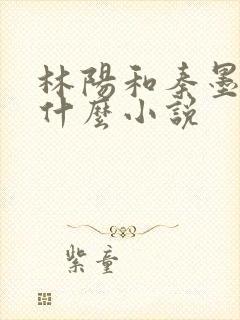 林陽和秦墨
什麼小說
紫童